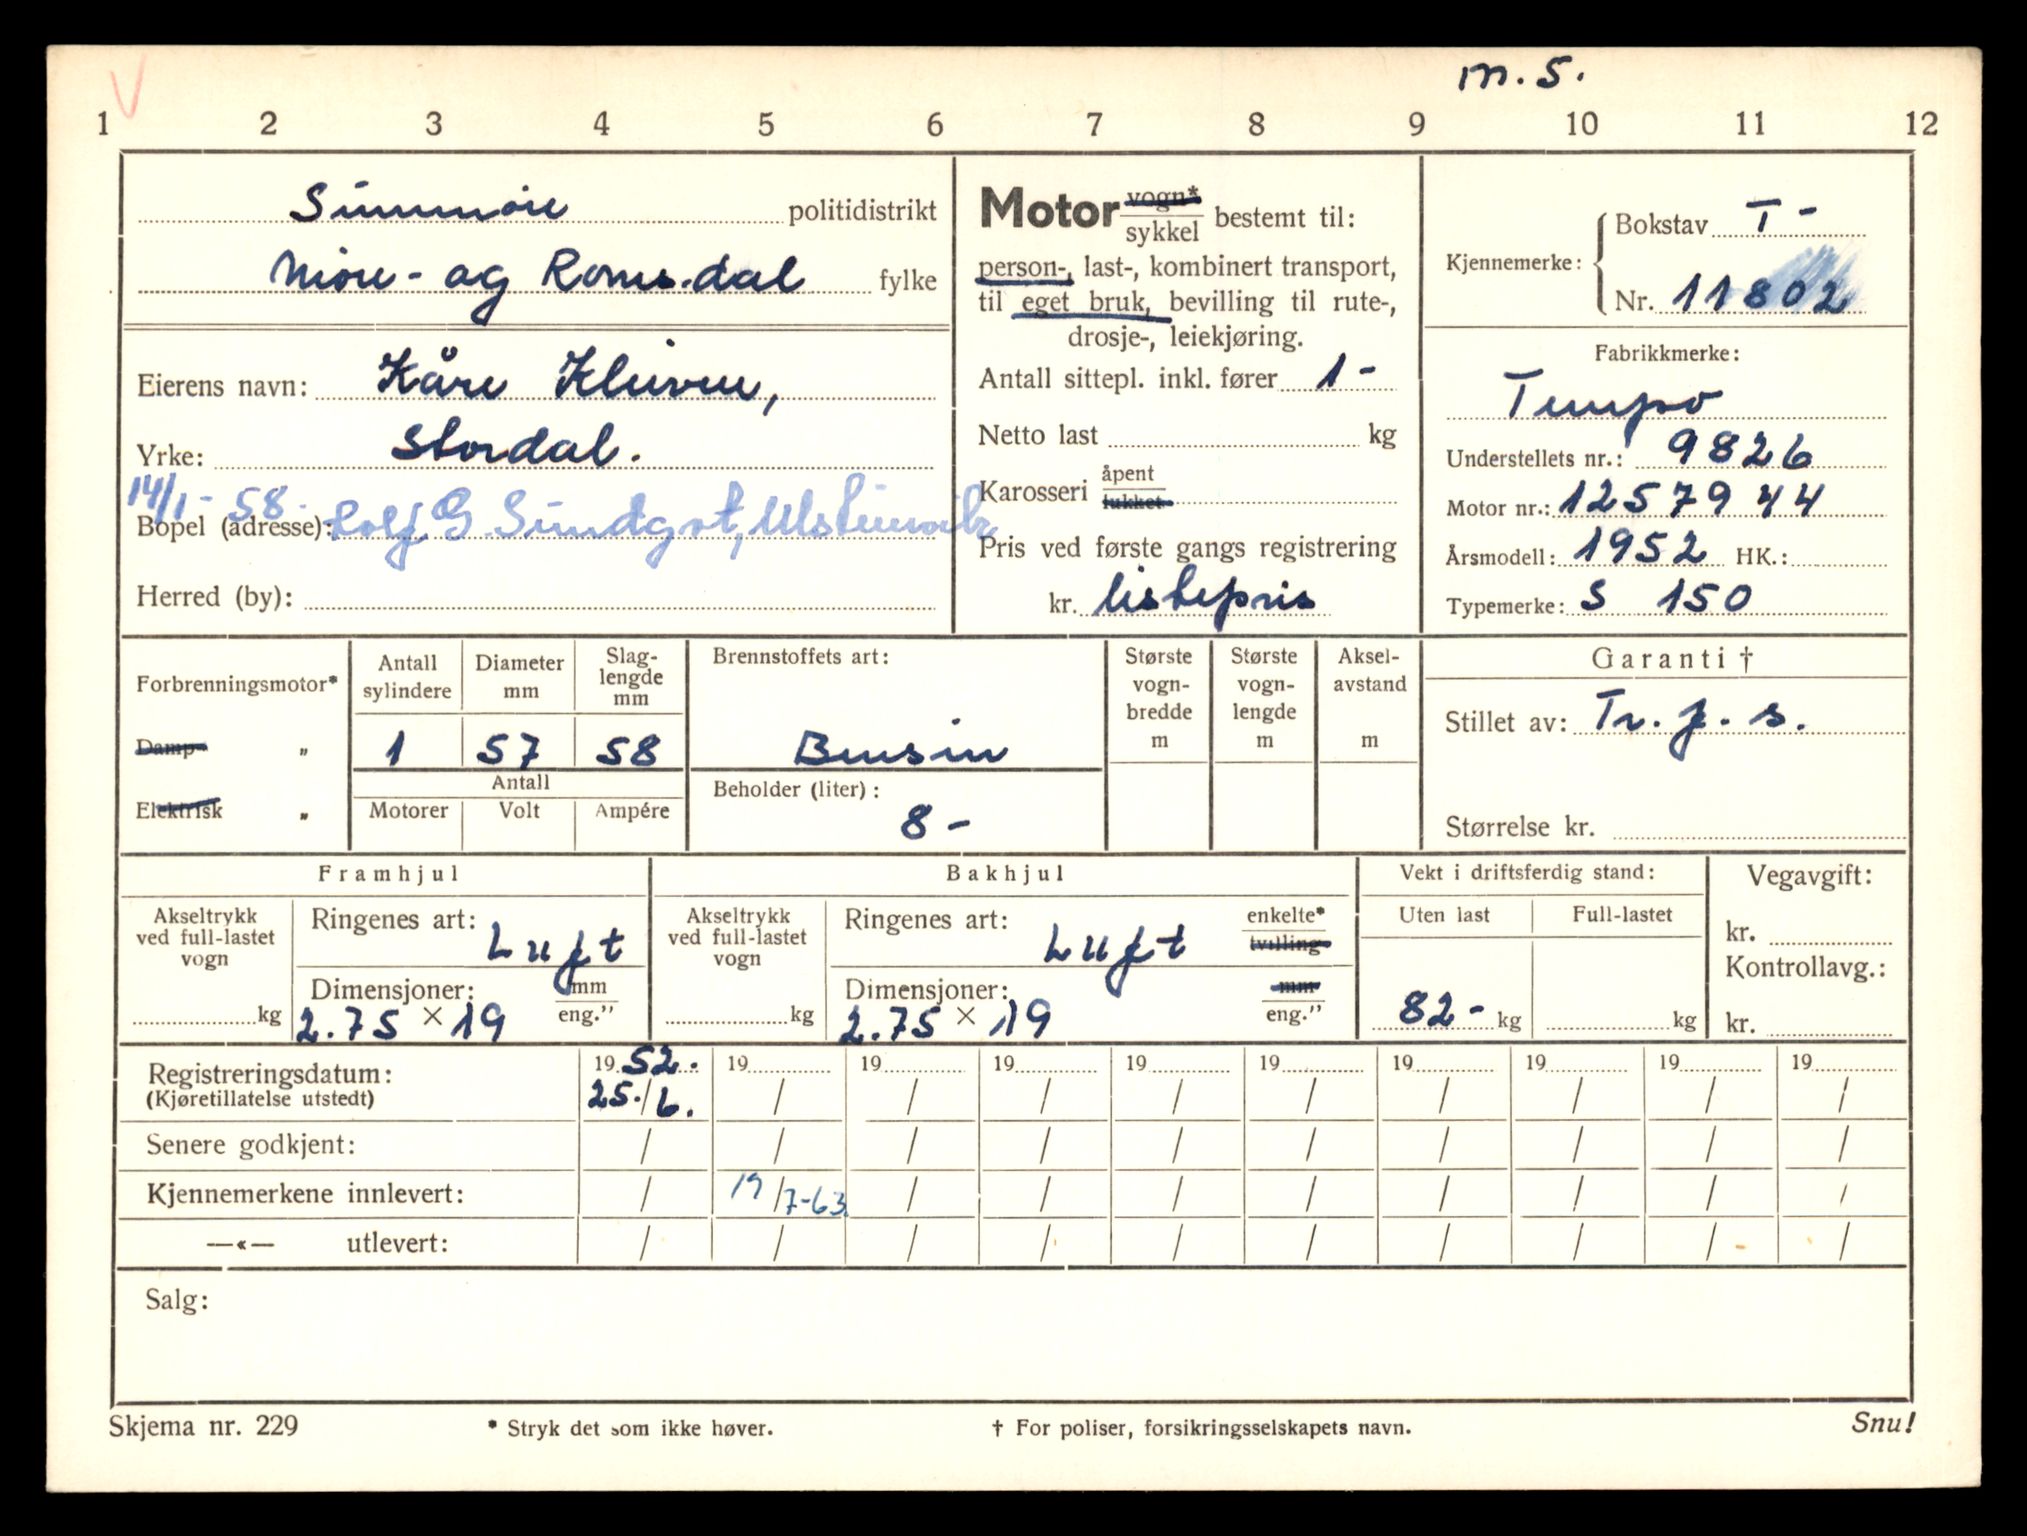 m. 5.
1 2 3 4 5 6 7 8 9 10 11 12
Sunnmøre politidistrikt
Møre- og Romsdal fylke
Eierens navn: Kåre Kleiven,
Yrke: Stordal.
14/1-58.
Bopel (adresse): Rolf G. Sundgot, Ulsteinvik
Herred (by):
Motor vogn* / sykkel bestemt til:
person-, last-, kombinert transport,
til eget bruk, bevilling til rute-,
drosje-, leiekjøring.
Antall sittepl. inkl. fører 1-
Netto last kg
Karosseri åpent / lukket
Pris ved første gangs registrering
kr. listepris
Kjennemerke: Bokstav T-
Nr. 11802
Fabrikkmerke:
Tempo
Understellets nr.: 9826
Motor nr.: 1257944
Årsmodell: 1952 HK.:
Typemerke: S 150
Forbrenningsmotor*
Damp- "
Elektrisk "
Antall sylindere 1
Diameter mm 57
Slag-lengde mm 58
Antall
Motorer Volt Ampére
Brennstoffets art:
Bensin
Beholder (liter):
8-
Største vogn-bredde m
Største vogn-lengde m
Aksel-avstand m
Garanti †
Stillet av: Tr. f. s.
Størrelse kr.
Framhjul
Akseltrykk ved full-lastet vogn kg
Ringenes art: Luft
Dimensjoner: mm / eng."
2.75 × 19
Bakhjul
Akseltrykk ved full-lastet vogn kg
Ringenes art: Luft enkelte* / tvilling-
Dimensjoner: mm / eng."
2.75 × 19
Vekt i driftsferdig stand:
Uten last Full-lastet
82- kg kg
Vegavgift:
kr.
Kontrollavg.:
kr.
Registreringsdatum: 1952. 19 19 19 19 19 19 19 19 19
(Kjøretillatelse utstedt) 25./6. / / / / / / / / /
Senere godkjent: / / / / / / / / / /
Kjennemerkene innlevert: / 19/7-63. / / / / / / / /
—«— utlevert: / / / / / / / / / /
Salg:
Skjema nr. 229 * Stryk det som ikke høver. † For poliser, forsikringsselskapets navn. Snu!